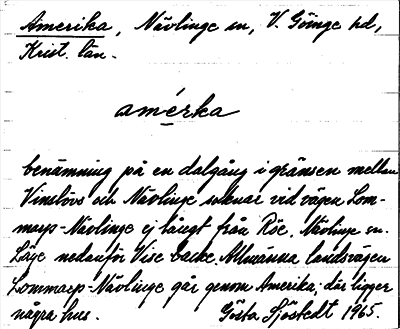 Amerika, Nävlinge sn, V. Göinge hd,
Krist. län.
amérka
benämning på en dalgång i gränsen mellan
Vinslövs och Nävlinge socknar vid vägen Lom-
marp-Nävlinge ej långt från Röe, Nävlinge sn.
Läge nedanför Vise backe. Allmänna landsvägen
Lommarp-Nävlinge går genom Amerika, där ligger
några hus. Gösta Sjöstedt 1965.